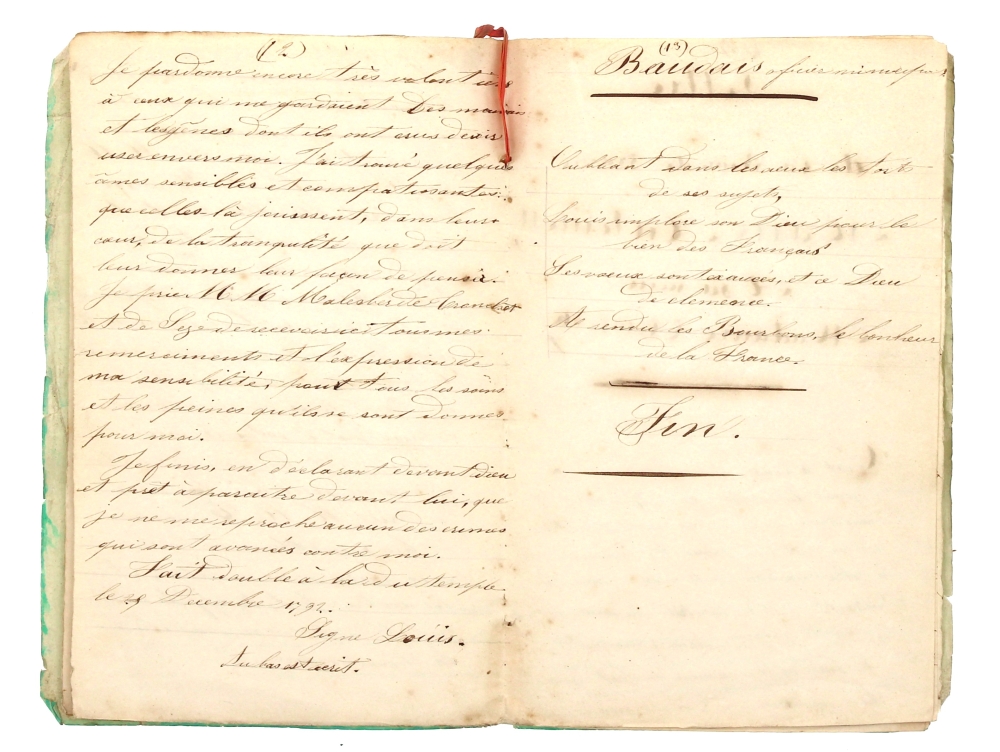 (12)
Je pardonne encore très volontiers
à ceux qui me gardaient Des mauvais
et les gênes dont ils ont crus devoir
user envers moi. J'ai trouvé quelques
âmes sensibles et compatissantes:
que celles-là jouissent, dans leurs
cœur, de la tranquilité que doit
leur donner leur façon de penser.
Je prie M M Malesherbe
et de Seze de recevoir ici tous mes
remerciments et l'expression de
ma sensibilité, pour tous les soins
et les peines qu'ils se sont donnés
pour moi.
Je finis, en déclarant devant dieu
et prêt à paraitre devant lui, que
je ne me reproche aucun des crimes
qui sont avancés contre moi.
Fait double à la du temple
le Decembre 1792.
Signé Louis.
Au bas est écrit.
(13)
Baudais officier municipal
Oubliant dans les cieux les torts
de ses sujets,
Louis implore son Dieu pour le
bien des Français
Ses vœux sont exaucés, et ce Dieu
de clemence.
A rendu les Bourbons, le bonheur
de la France.
Fin.